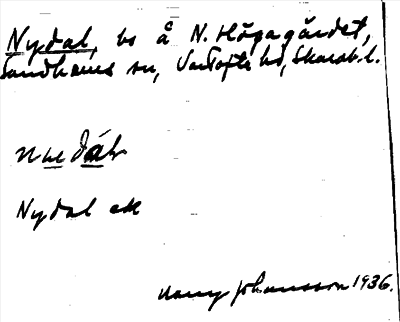 Nydal, bs å N. Högagärdet,
Sandhems sn, Vartofta hd, Skarab. l.
Nydal ek
Nanny Johansson 1936.